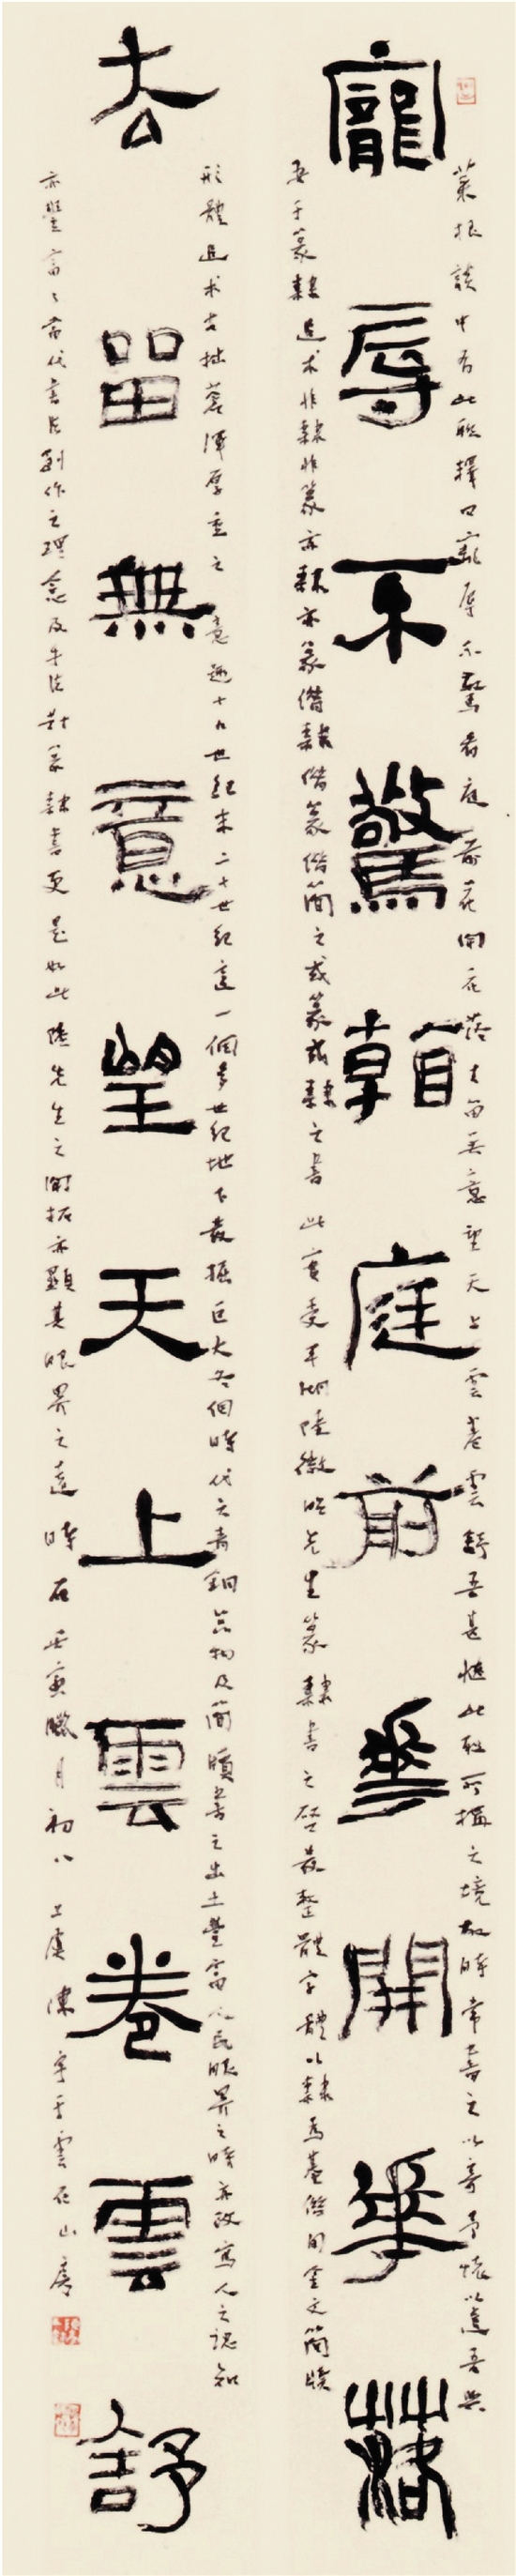 寵辱不驚看庭前華開華落
菜根談中有此聯擇曰寵辱不驚看庭前花開花落去留無意望天上雲卷雲舒吾甚愜此聯所描之境故時常書之以寄予懷以達吾興
吾于篆隸追求非隸非篆亦隸亦篆借隸借篆借簡之或篆或隸之書此實受平湖陸微昭先生篆隸書之啟發整體字體以隸為基借用金文簡牘
去畱無意望天上雲卷雲舒
形體追求古拙蒼渾厚重之意趣十九世紀末二十世紀這一個多世紀地下發掘巨大各個時代之青銅器物及簡牘書之出土豐富人民眼界之時亦改寫人之認知
亦豐富了當代書法創作之理念及手法對篆隸書更是如此陸先生之開拓亦顯其眼界之遠時在壬寅臘月初八上虞陳宇于雲在山房